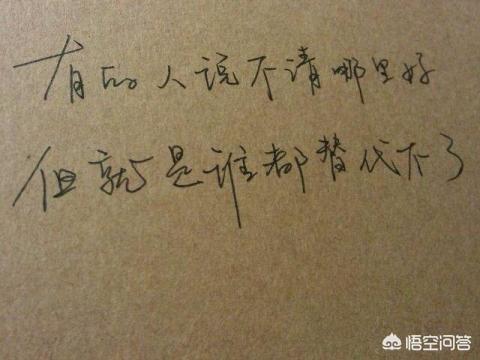 有的人说不清哪里好
但就是谁都替代不了
悟空问答